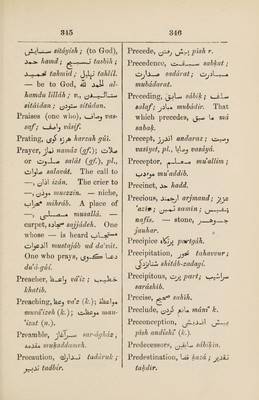 345
ستایش sitáyish ; (to God),
حمد hamd ; تسبیح tasbih ;
تحمید tahmid ; تهلیل tahlíl.
— be to God, الحمد لله al-
hamdu lilláh ; v., ستائیدن
sitáídan ; ستودن sitúdan.
Praises (one who), وصاف vas-
saf ; واصف vásif.
Prating, هرزه گوی harzah gúi.
Prayer, نماز namáz (gf.); صلاة
or صلوة salát (gf.), pl.,
صلوات salavát. The call to
—, اذان izán. The crier to
—, مؤذن muezzin. — niche,
محراب mihráb. A place of
—, مصلی musallá. —
carpet, سجاده sajjádeh. One
whose — is heard مستجاب
الدعوات mustajáb ud da'vát.
One who prays, دعاگوی
du'á-gúi.
Preacher, واعظ vá'iz ; خطیب
khatíb.
Preaching, وعظ va'z (k.); مواعظه
muvá'izeh (k.); موعظت mau-
'izat (m.).
Preamble, سرآغاز sar-ághúz ;
مقدمه mukaddameh.
Precaution, تدارك tadáruk ;
تدبیر tadbír.
346
Precede, پیش رفتن písh r.
Precedence, سبقت sabkat ;
صدارت sadárat ; مبادرت
mubádarat.
Preceding, سابق sábik ; سلف
salaf ; مبادر mubádir. That
which precedes, ما سبق má
sabak.
Precept, اندرز andaraz ; وصیت
vasíyet, pl., وصایا vasáyá.
Preceptor, معلم mu'allim ;
مؤدب mu'addib.
Precinct, حد hadd.
Precious, ارجمند arjmand ; عزیز
'azíz ; ثمین samín ; نفیس
nafís. — stone, جوهر
jauhar.
Precipice پرتگاه partgáh.
Precipitation, تهور tahavvur ;
شتاب‌زدگی shitáb-zadagi.
Precipitous, پرت part; سراشیب
saráshíb.
Precise, صحیح sahíh.
Preclude, مانع کردن máni' k.
Preconception, پیش اندیشی
písh andíshí (k.).
Predecessors, سابقین sábikín.
Predestination, قضا kazá ; تقدیر
takdír.